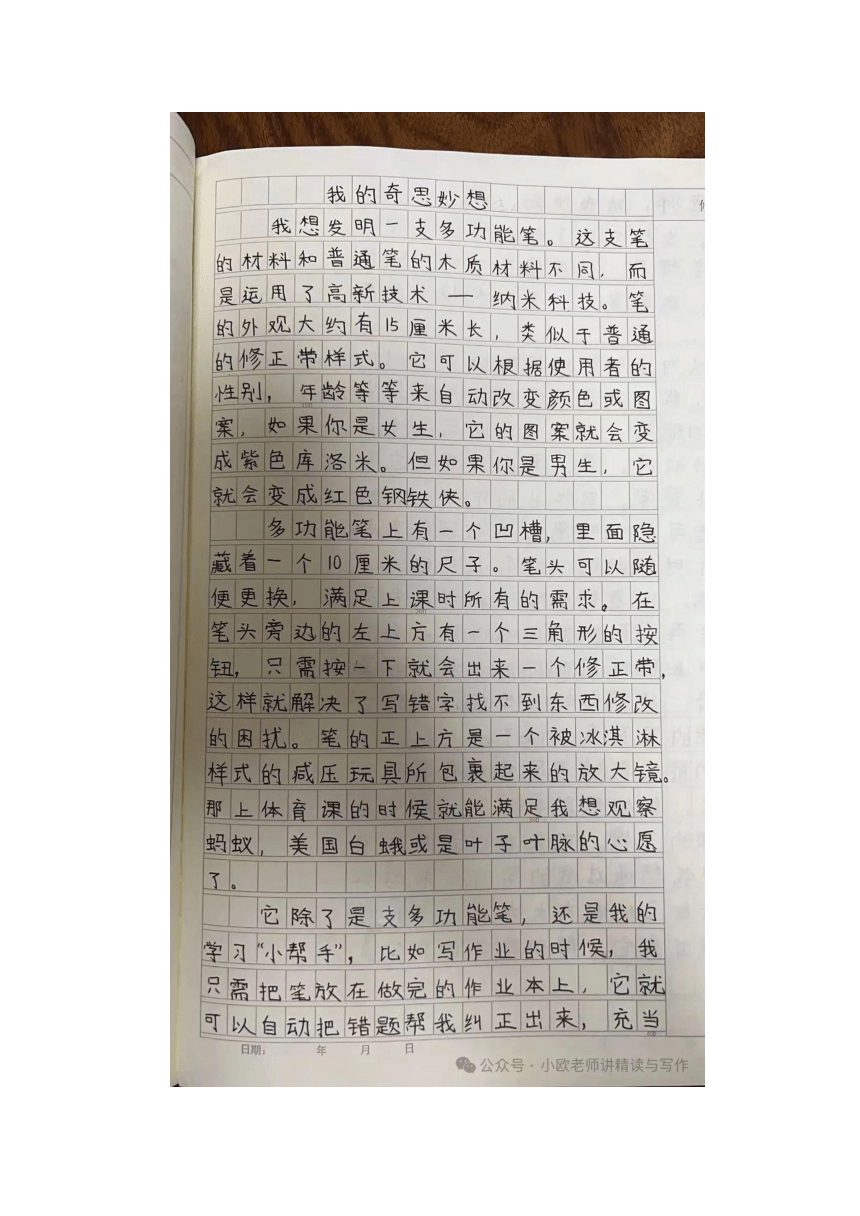 我的奇思妙想
我想发明一支多功能笔。这支笔
的材料和普通笔的木质材料不同，而
是运用了高新技术——纳米科技。笔
的外观大约有15厘米长，类似于普通
的修正带样式。它可以根据使用者的
性别，年龄等等来自动改变颜色或图
案，如果你是女生，它的图案就会变
成紫色库洛米。但如果你是男生，它
就会变成红色钢铁侠。
多功能笔上有一个凹槽，里面隐
藏着一个10厘米的尺子。笔头可以随
便更换，满足上课时所有的需求。在
笔头旁边的左上方有一个三角形的按
钮，只需按一下就会出来一个修正带，
这样就解决了写错字找不到东西修改
的困扰。笔的正上方是一个被冰淇淋
样式的减压玩具所包裹起来的放大镜。
那上体育课的时候就能满足我想观察
蚂蚁，美国白蛾或是叶子叶脉的心愿
了。
它除了是支多功能笔，还是我的
学习“小帮手”，比如写作业的时候，我
只需把笔放在做完的作业本上，它就
可以自动把错题帮我纠正出来，充当
日期： 年 月 日
公众号·小欧老师讲精读与写作